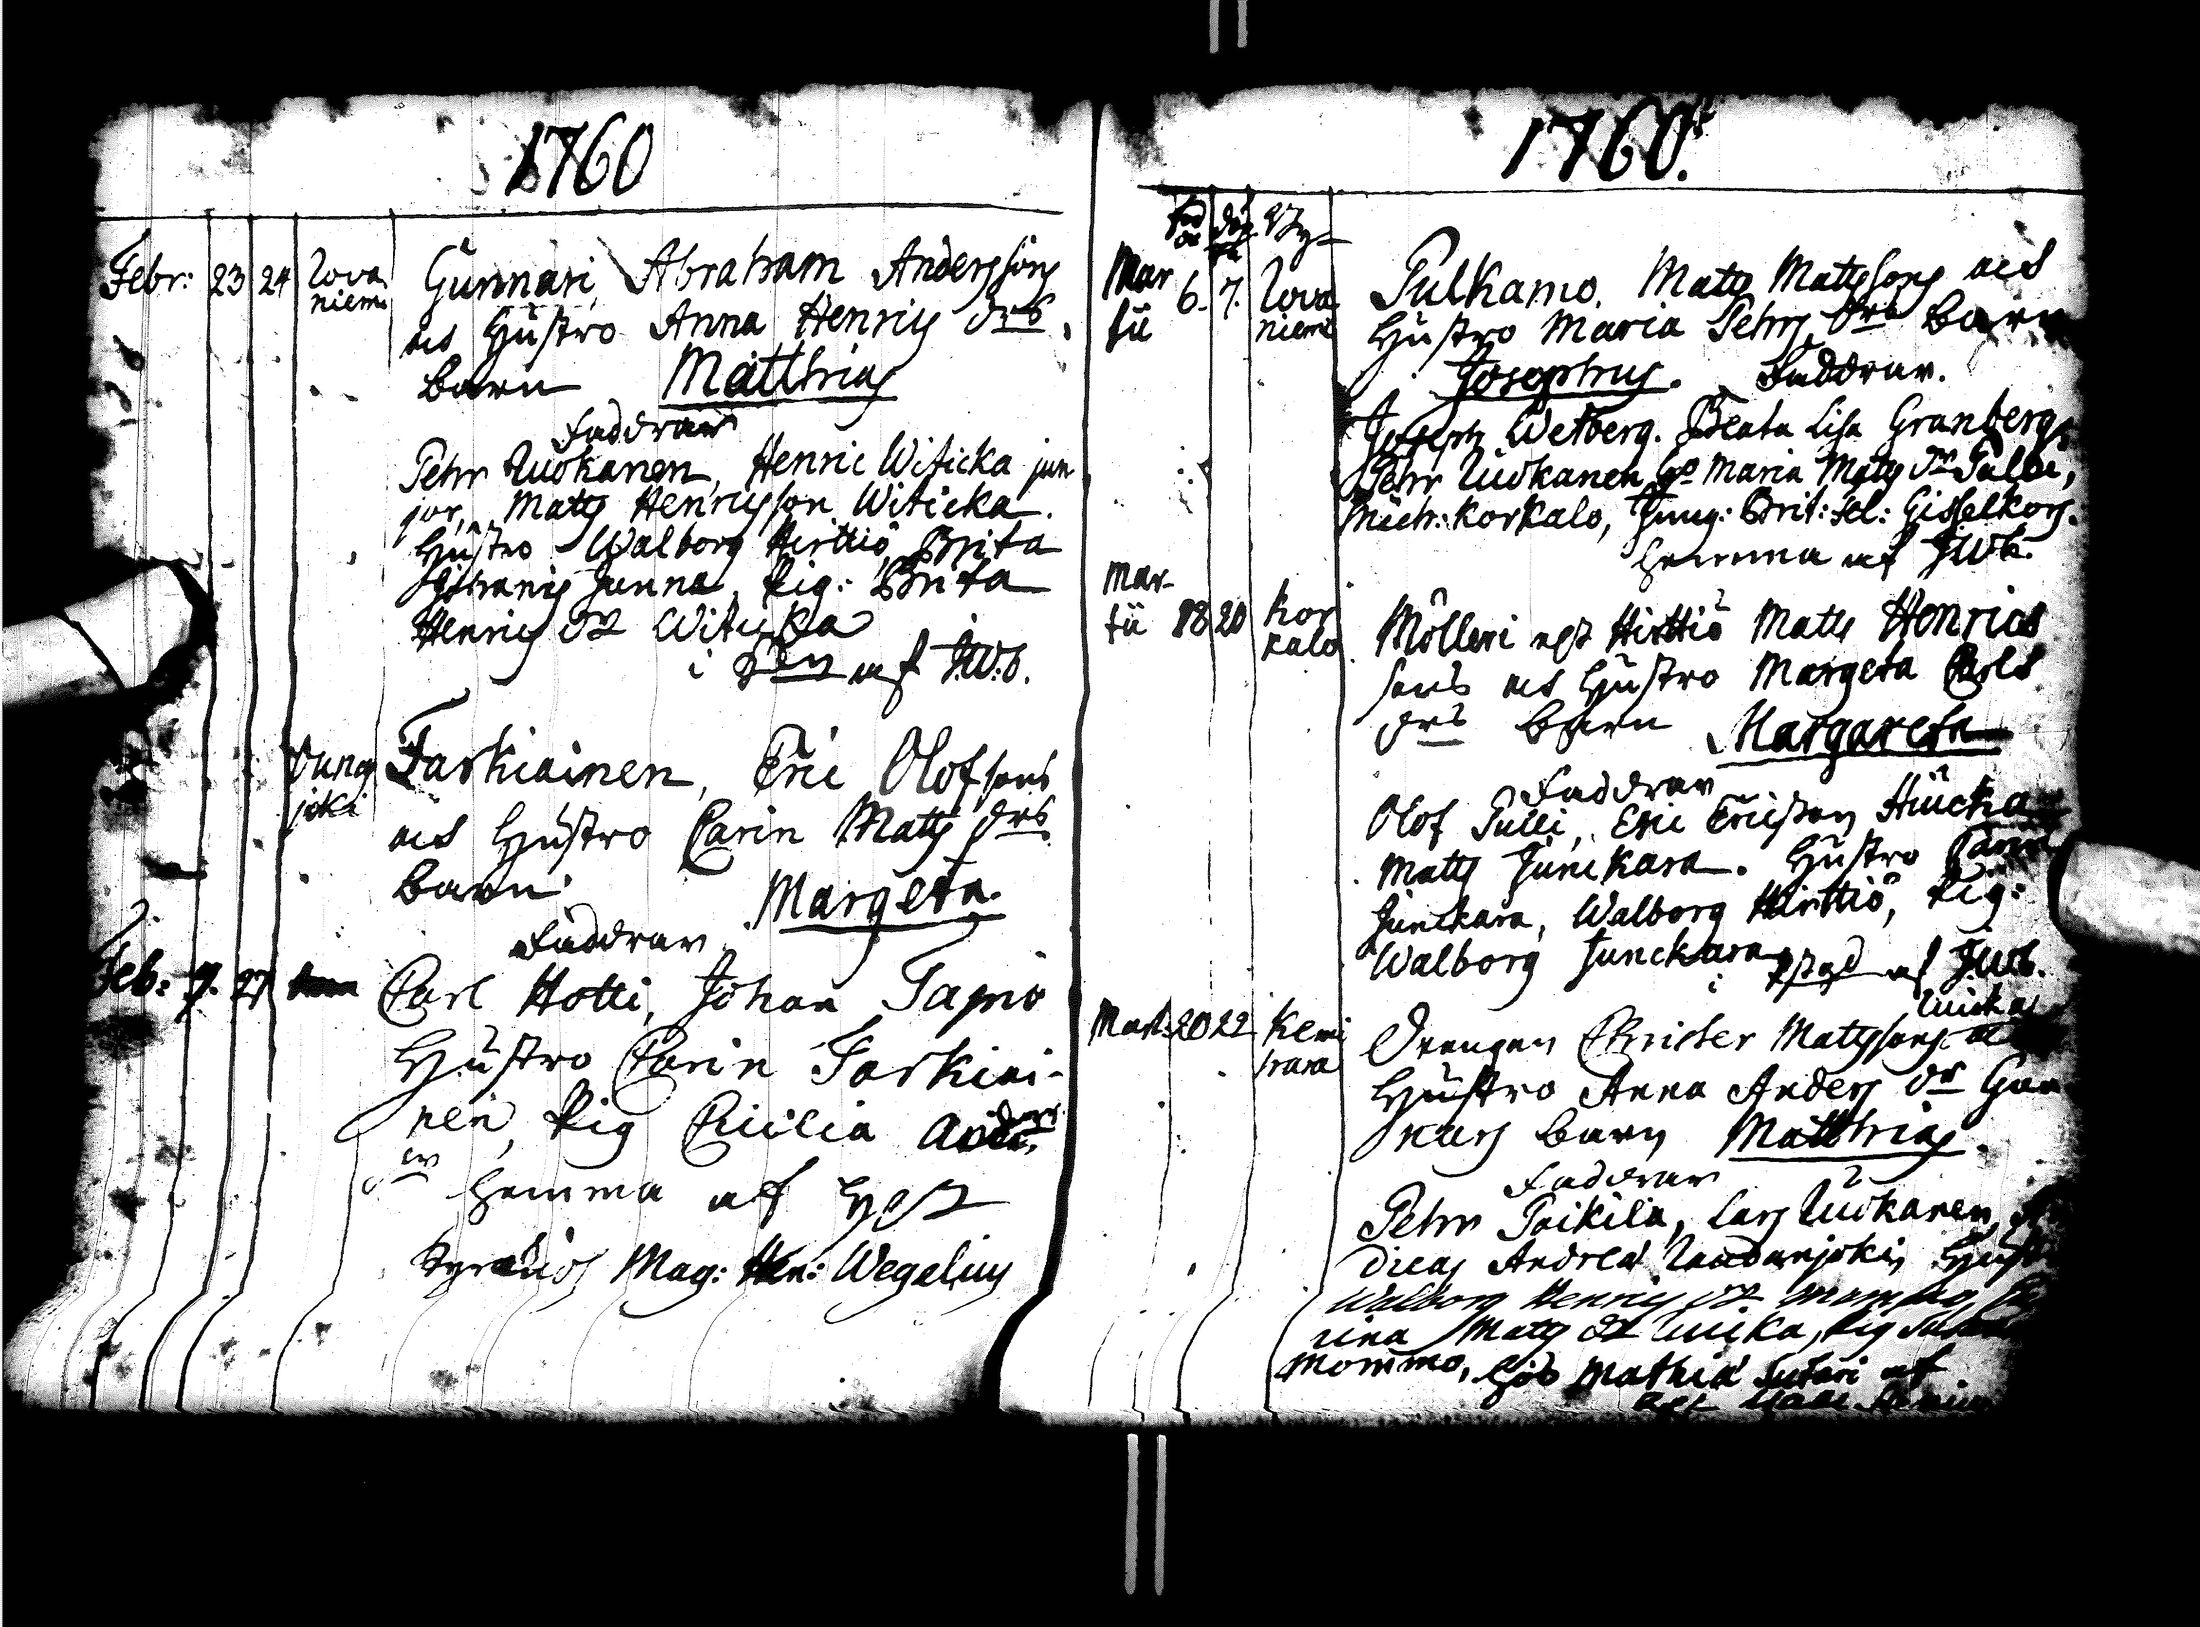 1760
Febr: 23 24 Rova
niemi
Gunnari, Abraham Anderssons
ocs Hustro Anna Henrics drs
barn Matthias
Faddrar
Pehr Ruokanen, Henric Witicka jun
ior, Matts Henricsson Witicka.
Hustro Walborg Hirttiö, Brita
Junna, Pig: Brita
Henrics dr Witicka
i af J.W.b.
Oung
joki
Tarkiainen, Eric Olofsons
ocs Hustro Carin Matts drs
barn:
Margeta.
Faddrar
Feb: 9. 27
Carl Hotti, Johan Tapio
Hustro Carin Tarkiai-
nen, Pig Cicilia
dr hemma af
Mag: Hen: Wegelius
1760.
född döp By
Mar
tii 6. 7. Rova
niemi
Pulkamo. Matts Mattssons ocs
Hustro Maria Pehrs drs barn
Josephus. Faddrar.
Joseph Wetberg. Beata Lisa Granberg,
Pehr Ruokanen, Ho Maria Matts dr Pulli,
Mich: Korkalo, Jung: Brit: Hel: Gisselkors.
hemma af JWb.
Mar-
tii 18 20 Kor
kalo
Mölleri Hirttiö Matts Henrics
sons ocs Hustro Margeta Carls
drs barn Margareta
Faddrar
Olof Pulli, Eric Ericsson
Matts Junckara. Hustro Carin
Junckara, Walborg Hirttiö, Pig:
Walborg Junckara
i af JWb.
Mart: 20 22 Kemi
hara
Luicka
Drengen Christer Mattssons
Hustro Anna Anders dr Gun
nars barn Matthias.
Faddrar
Pehr Poikila, Lars Ruokanen,
Andreæ Raudanjoki,
Walborg Henrics dr Mommo,
rina Matts dr Luicka, Pig
Mommo, hos Mathia Sutari af